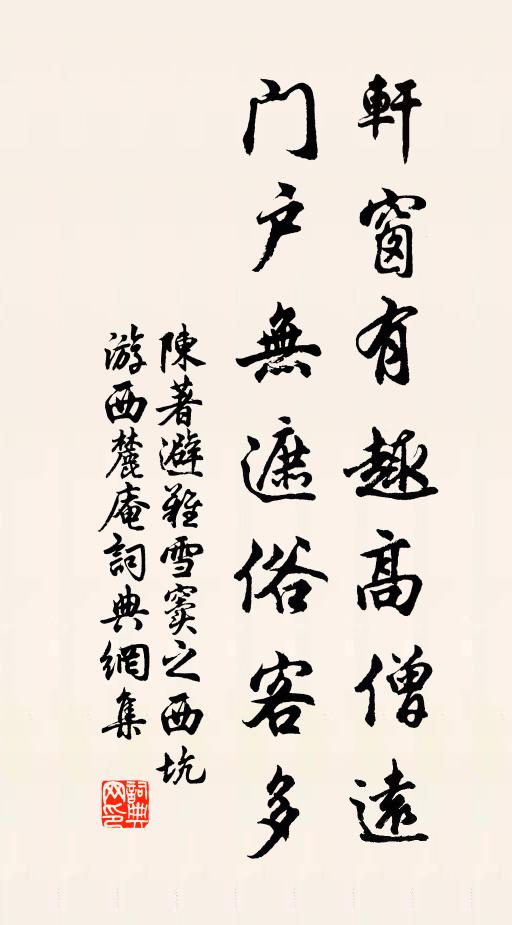 軒窗有趣高僧遠
門戶無遮俗客多
陳著避難雪竇之西坑
游西麓庵詞典網集
詞典网印